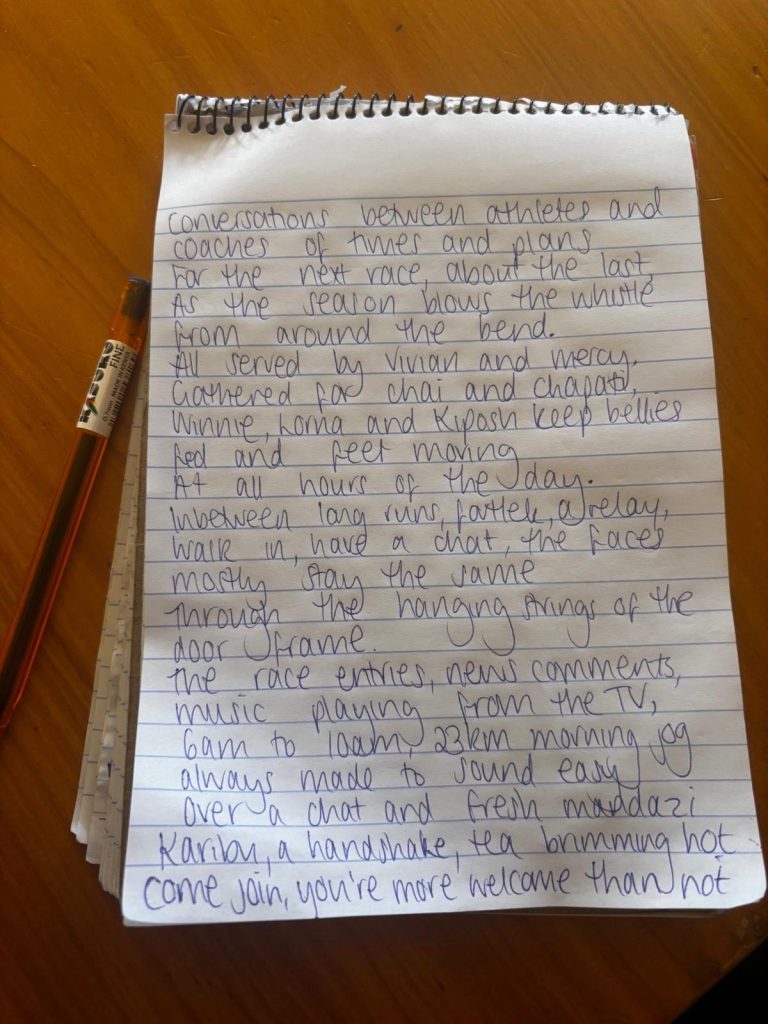 Conversations between athletes and
coaches of times and plans
For the next race, about the last,
As the season blows the whistle
from around the bend.
All served by Vivian and mercy,
Gathered for chai and chapati,
Winnie, Lorna and Kiposh keep bellies
fed and feet moving
At all hours of the day.
Inbetween long runs, fartlek, a relay,
walk in, have a chat, the faces
mostly stay the same
Through the hanging strings of the
door frame.
The race entries, news comments,
music playing from the TV,
6am to 10am, 23km morning jog
always made to sound easy
Over a chat and fresh mandazi
Karibu, a handshake, tea brimming hot
Come join, you're more welcome than not
FINE